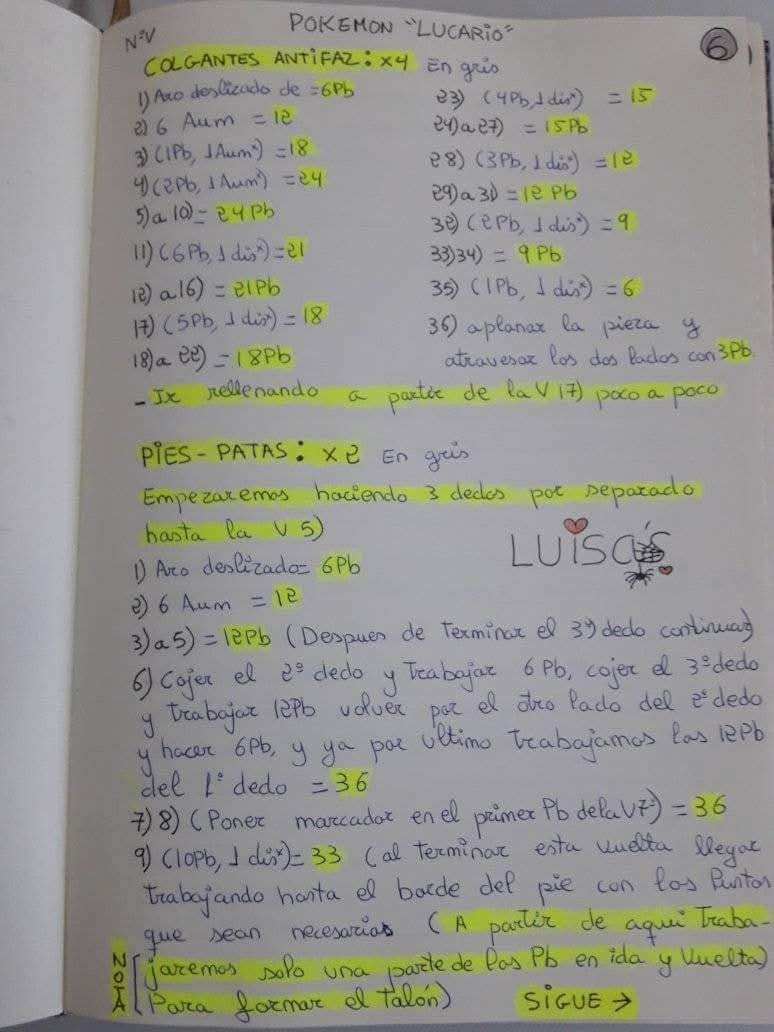 NºV
POKEMON "LUCARIO"
6
COLGANTES ANTIFAZ: x4 En gris
1) Aro deslizado de = 6Pb
2) 6 Aum = 12
3) (1Pb, 1 Aumº) = 18
4) (2Pb, 1 Aumº) = 24
5) a 10) = 24Pb
11) (6Pb, 1 disº) = 21
12) a 16) = 21Pb
17) (5Pb, 1 disº) = 18
18) a 22) = 18Pb
23) (4Pb, 1 disº) = 15
24) a 27) = 15Pb
28) (3Pb, 1 disº) = 12
29) a 31) = 12 Pb
32) (2Pb, 1 disº) = 9
33) 34) = 9Pb
35) (1Pb, 1 disº) = 6
36) aplanar la pieza y
atravesar los dos lados con 3Pb.
- Ir rellenando a partir de la V 17) poco a poco
PIES - PATAS: x2 En gris
Empezaremos haciendo 3 dedos por separado
hasta la V 5)
LUISA'S
1) Aro deslizado = 6Pb
2) 6 Aum = 12
3) a 5) = 12Pb (Despues de Terminar el 3º dedo continuar)
6) Cojer el 2º dedo y Trabajar 6Pb, cojer el 3º dedo
y trabajar 12Pb volver por el otro lado del 2º dedo
y hacer 6Pb, y ya por ultimo trabajamos los 12Pb
del 1º dedo = 36
7) 8) (Poner marcador en el primer Pb de la V7º) = 36
9) (10Pb, 1 disº) = 33 (al Terminar esta vuelta llegar
trabajando hasta el borde del pie con los Puntos
que sean necesarios (A partir de aqui Traba-
jaremos solo una parte de los Pb en ida y Vuelta)
Para formar el talón)
NOTA
SIGUE →